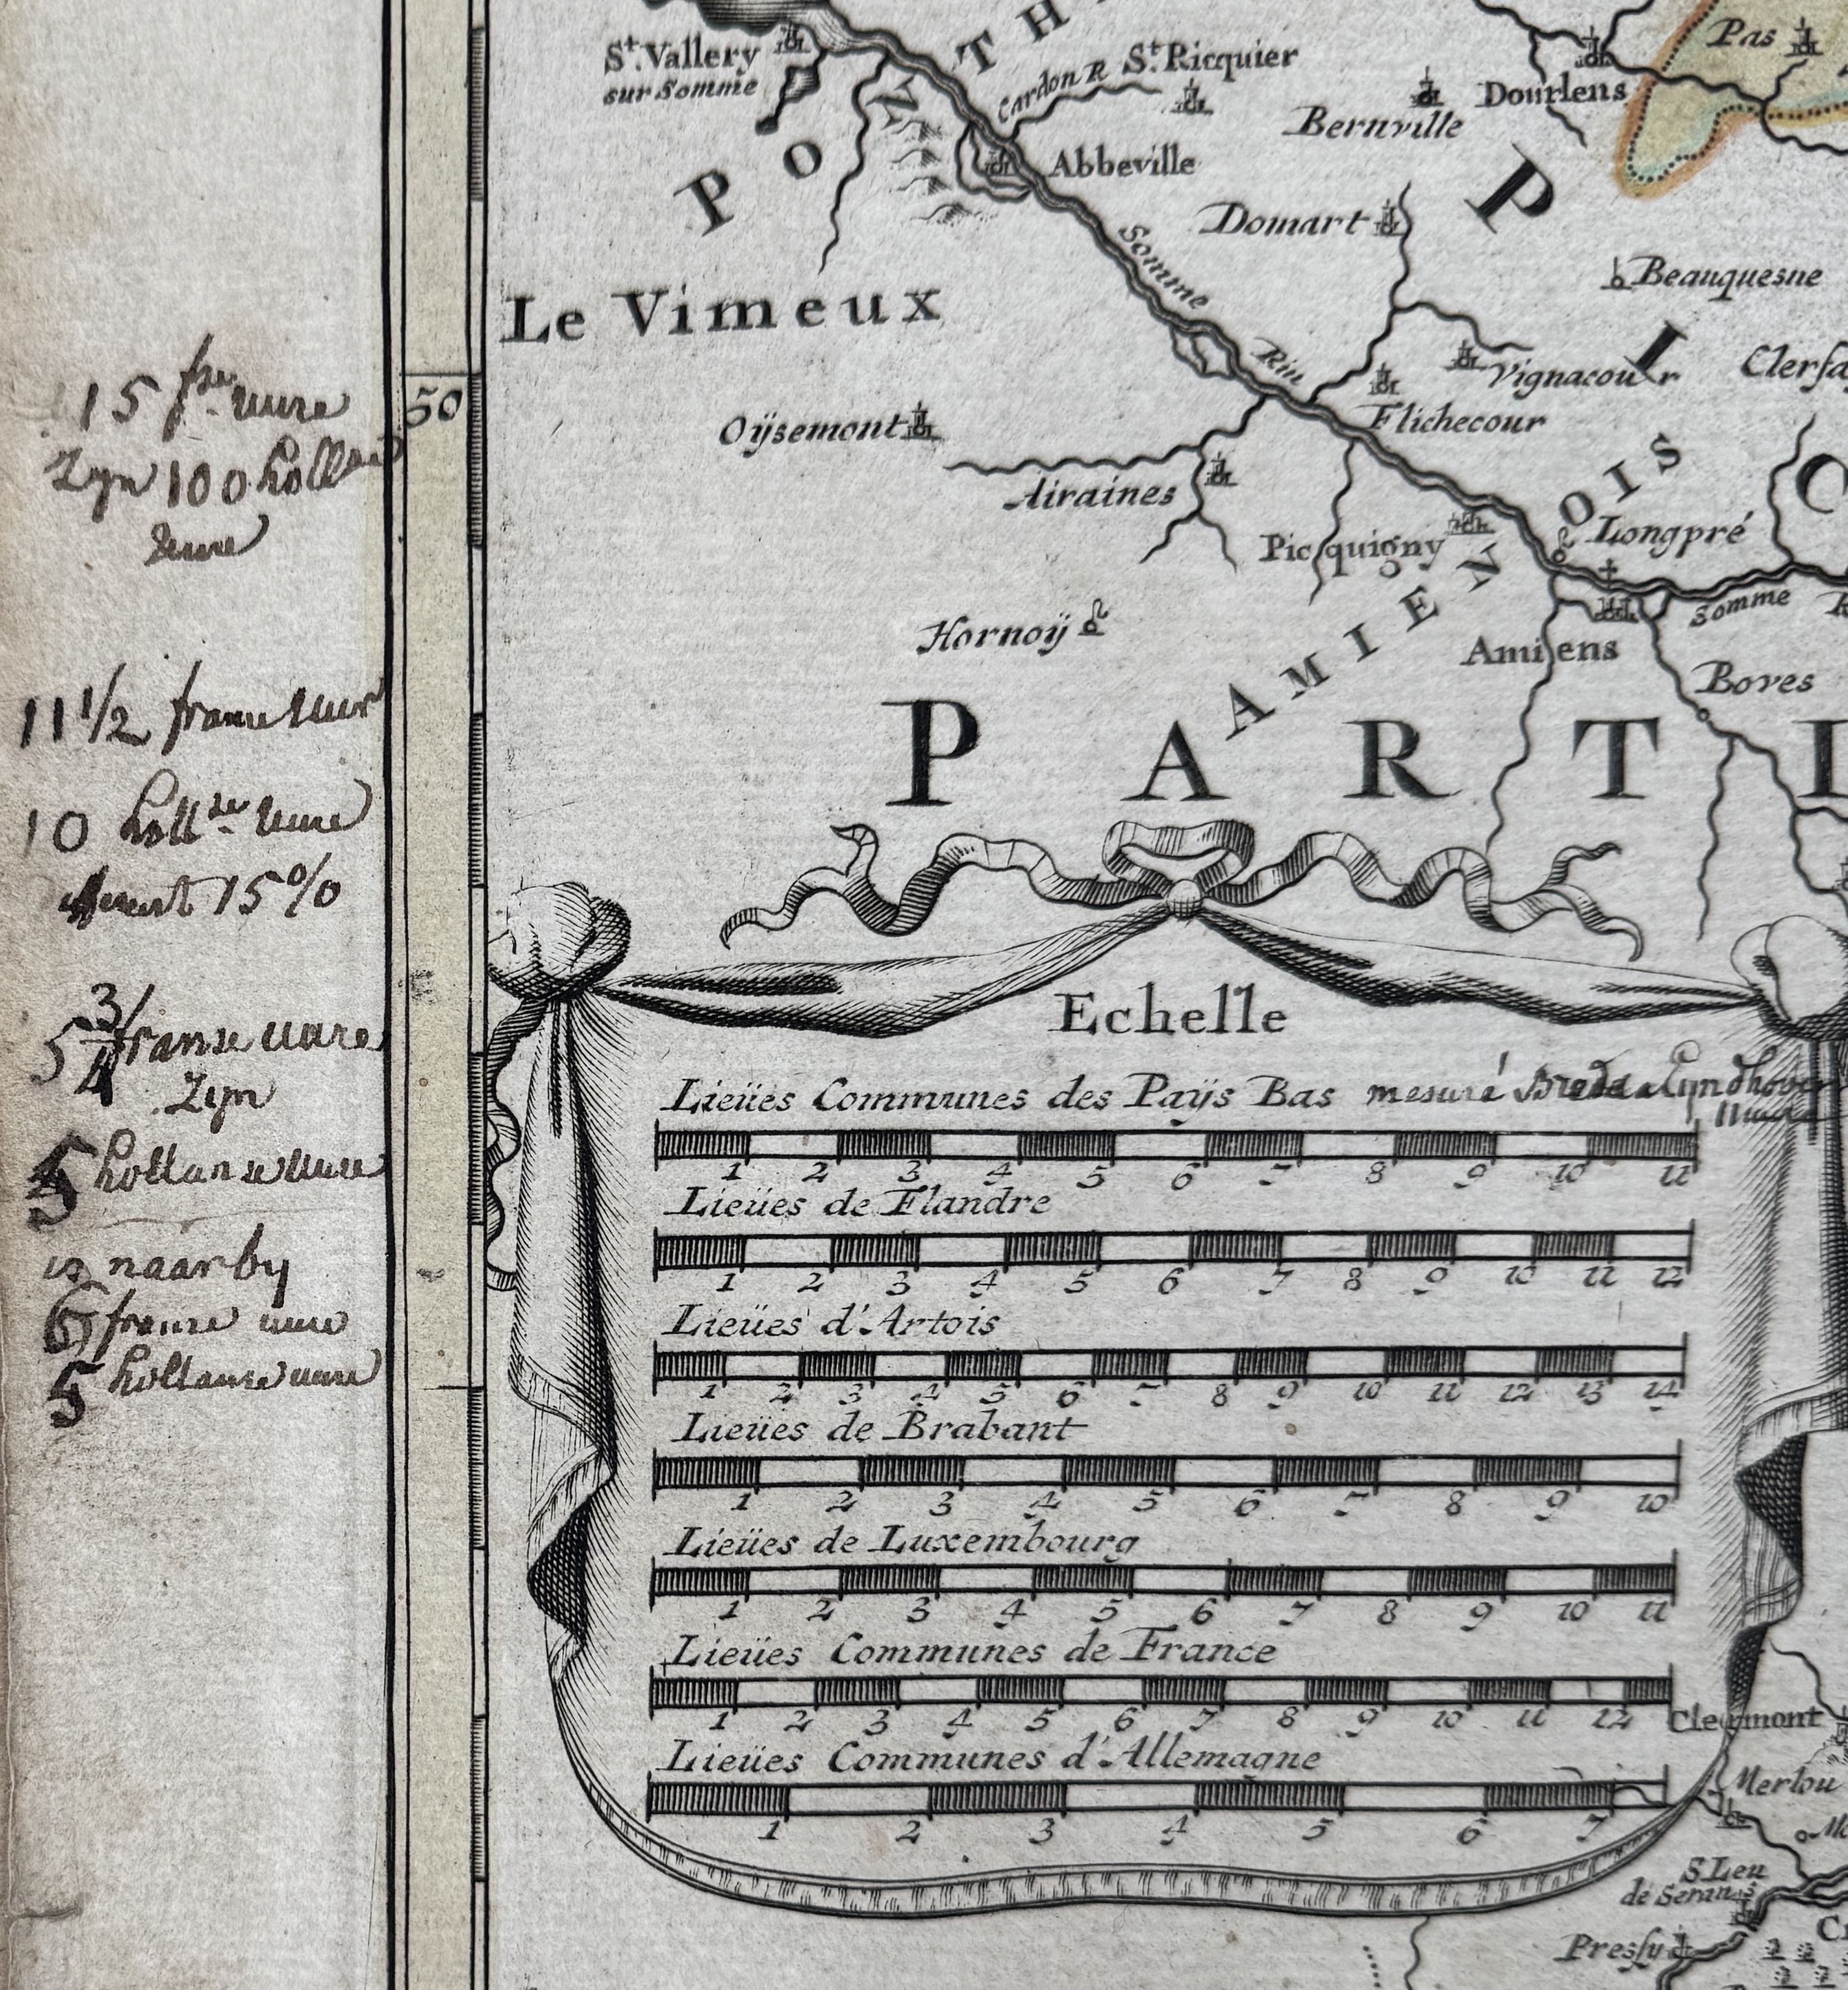 St. Vallery
sur Somme
PONTH
Cardon R
St. Ricquier
Bernville
Dourlens
Pas
Abbeville
Domart
P
Beauquesne
Somme
Riu
Le Vimeux
I
Vignacour
Clerfa
Flichecour
50
Oÿsemont
Airaines
Picquigny
C
Longpré
AMIENOIS
Somme
Hornoÿ
Amiens
Boves
PARTI
15 fse uure
Zyn 100 holla
uure
11 1/2 franse uur
10 hollse uure
15%
5 3/4 franse uure
Zyn
5 hollanse uure
is naarby
6 franse uure
5 hollanse uure
Echelle
Lieües Communes des Païjs Bas mesuré Breda Lyndhoven
uure
1 2 3 4 5 6 7 8 9 10 11
Lieües de Flandre
1 2 3 4 5 6 7 8 9 10 11 12
Lieües d'Artois
1 2 3 4 5 6 7 8 9 10 11 12 13 14
Lieües de Brabant
1 2 3 4 5 6 7 8 9 10
Lieües de Luxembourg
1 2 3 4 5 6 7 8 9 10 11
Lieües Communes de France
1 2 3 4 5 6 7 8 9 10 11 12
Clermont
Lieües Communes d'Allemagne
1 2 3 4 5 6 7
Merlou
S. Leu
de Serans
Presly